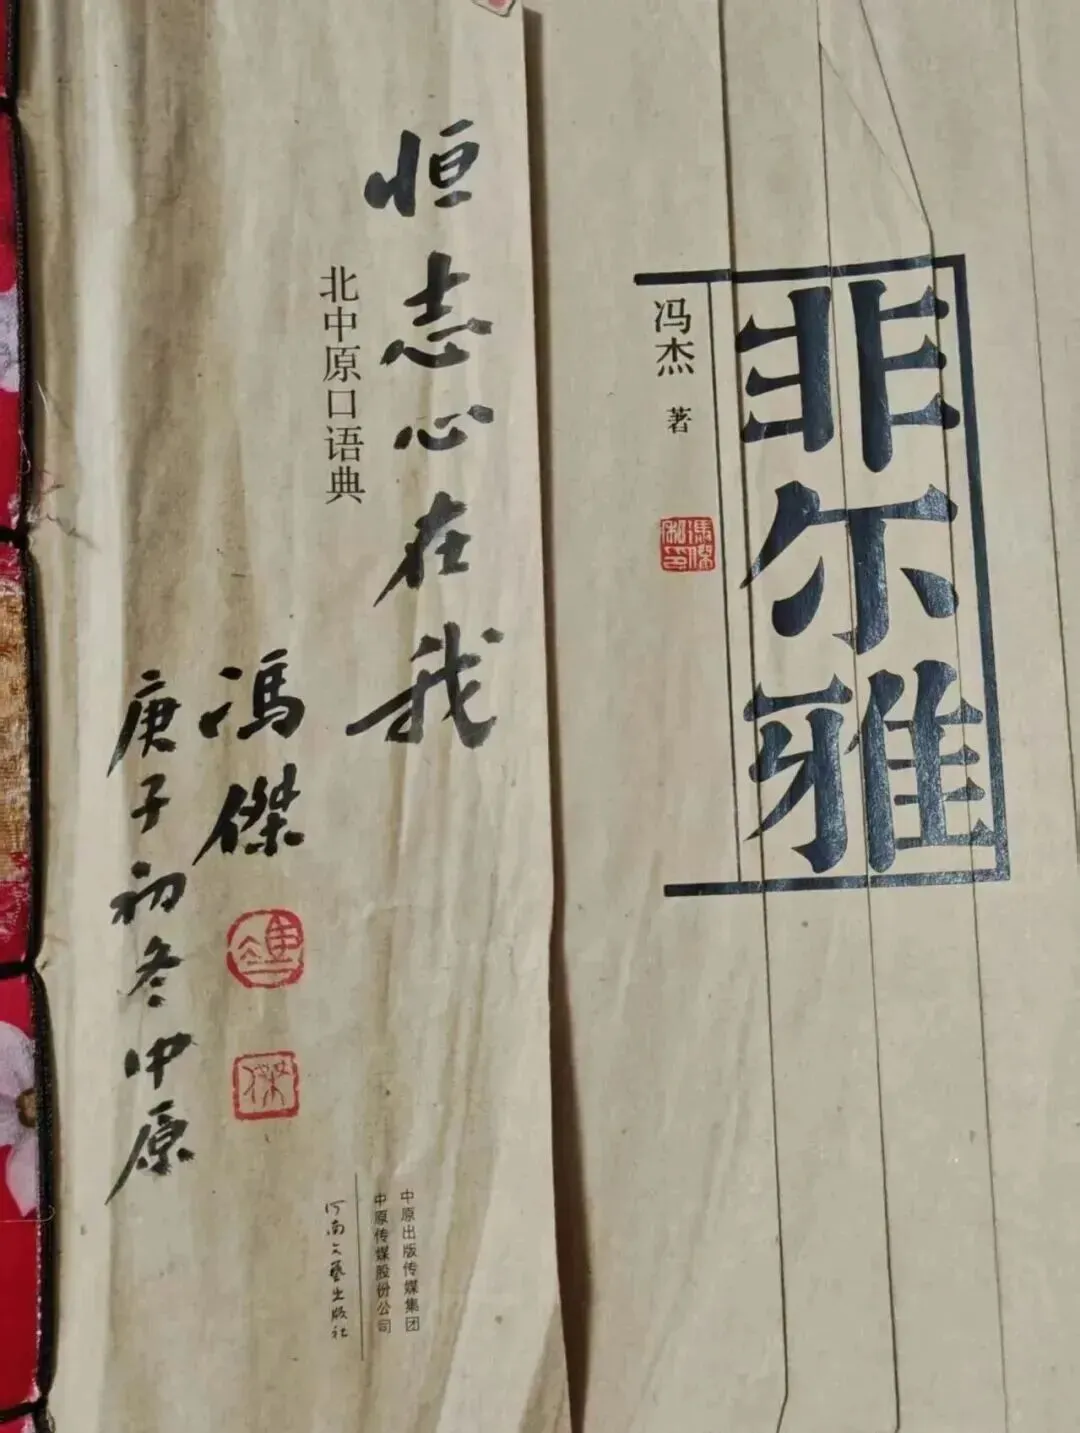 非尔雅
冯杰 著
馮傑
恒志心在我
北中原口语典
馮傑
庚子初冬中原
傑
中原出版传媒集团
中原传媒股份公司
河南文艺出版社